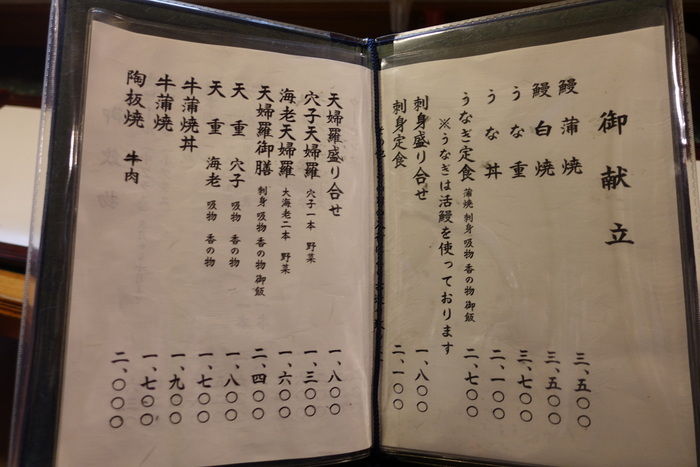 御献立
鰻蒲焼 三、五〇〇
鰻白焼 三、五〇〇
うな重 三、七〇〇
うな丼 二、一〇〇
うなぎ定食 蒲焼 刺身 吸物 香の物 御飯 二、七〇〇
※うなぎは活鰻を使っております
刺身盛り合せ 一、八〇〇
刺身定食 二、一〇〇
天婦羅盛り合せ 一、八〇〇
穴子天婦羅 穴子一本 野菜 一、三〇〇
海老天婦羅 大海老二本 野菜 一、六〇〇
天婦羅御膳 刺身 吸物 香の物 御飯 二、四〇〇
天重 穴子 吸物 香の物 一、八〇〇
天重 海老 吸物 香の物 一、七〇〇
牛蒲焼丼 一、九〇〇
牛蒲焼 一、七〇〇
陶板焼 牛肉 二、〇〇〇